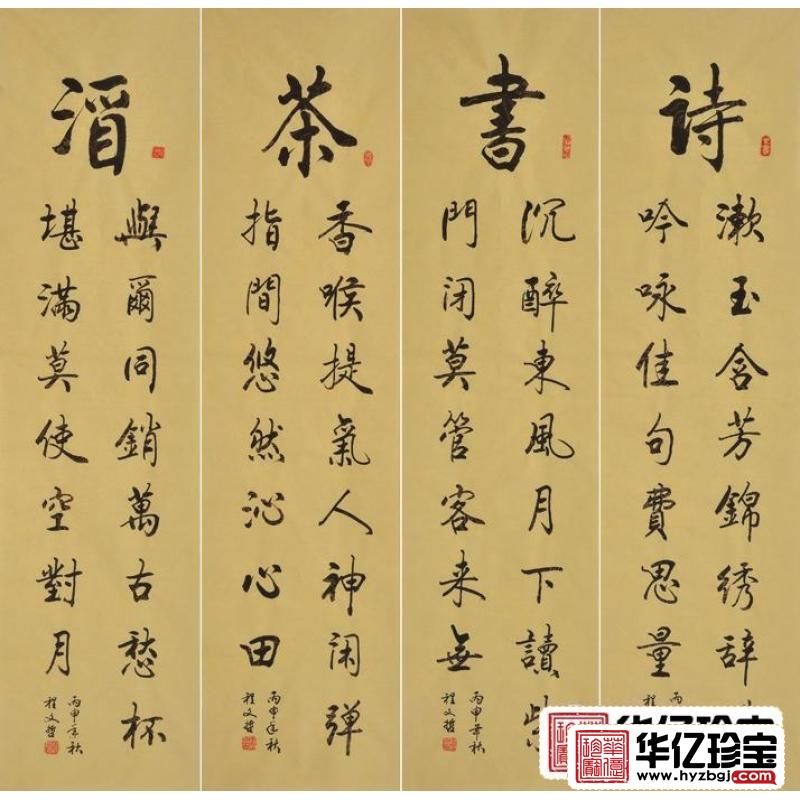 詩
漱玉含芳錦绣辞
吟咏佳句費思量
丙
程
書
沉醉東風月下讀柴
門闭莫管客来無
丙申年秋
程文哲
茶
香喉提氣人神闲弹
指間悠然沁心田
丙申年秋
程文哲
酒
與爾同銷萬古愁杯
堪滿莫使空對月
丙申年秋
程文哲
华亿珍宝
www.hyzbgj.com